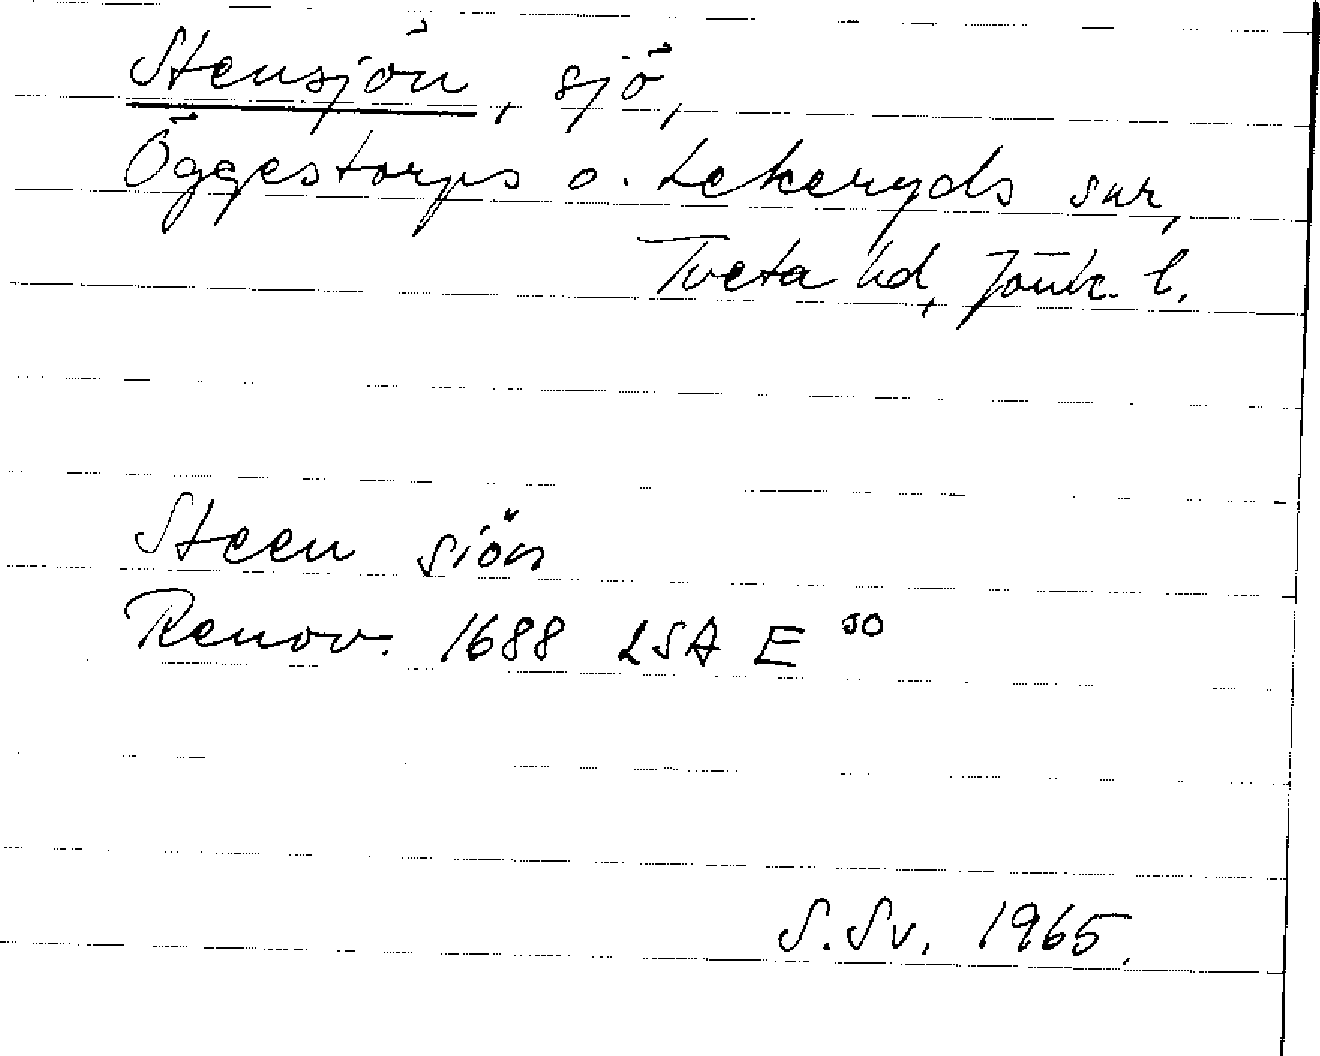 Stensjön, sjö,
Öggestorps o. Lekeryds snr,
Tveta hd, Jönk. l.
Steen siön
Renov. 1688 LSA E 50
S. Sv. 1965.